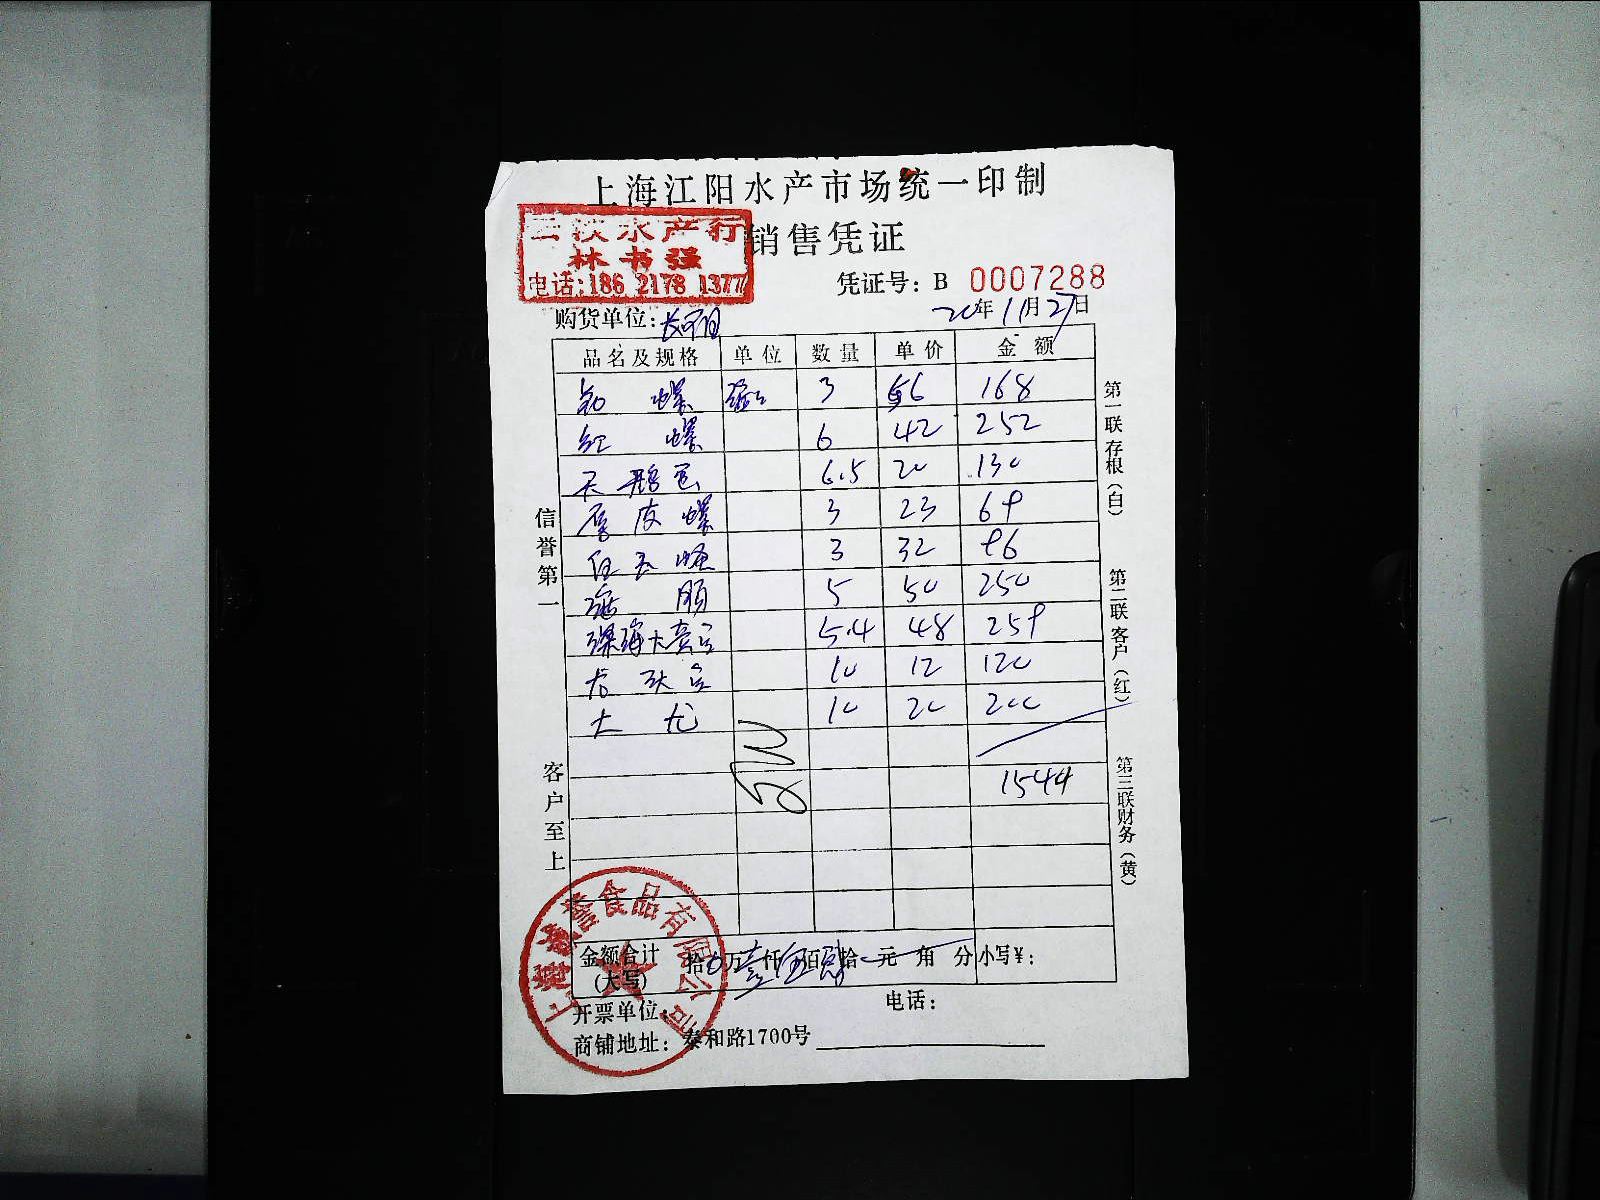 上海江阳水产市场统一印制
销售凭证
水产行
林书强
电话:186 2178 1377
凭证号: B 0007288
购货单位:
20年11月27日
品名及规格 单位 数量 单价 金额
螺 3 56 168
红 螺 6 42 252
天鹅蛋 6.5 20 130
厚皮螺 3 23 69
3 32 96
5 50 250
深海大 5.4 48 259
10 12 120
大 龙 10 20 200
1544
金额合计(大写) 拾 万壹仟伍佰 拾 元 角 分 小写¥:
开票单位: 电话:
商铺地址: 泰和路1700号
信誉第一
客户至上
第一联存根(白)
第二联客户(红)
第三联财务(黄)
上海 誉食品有限公司